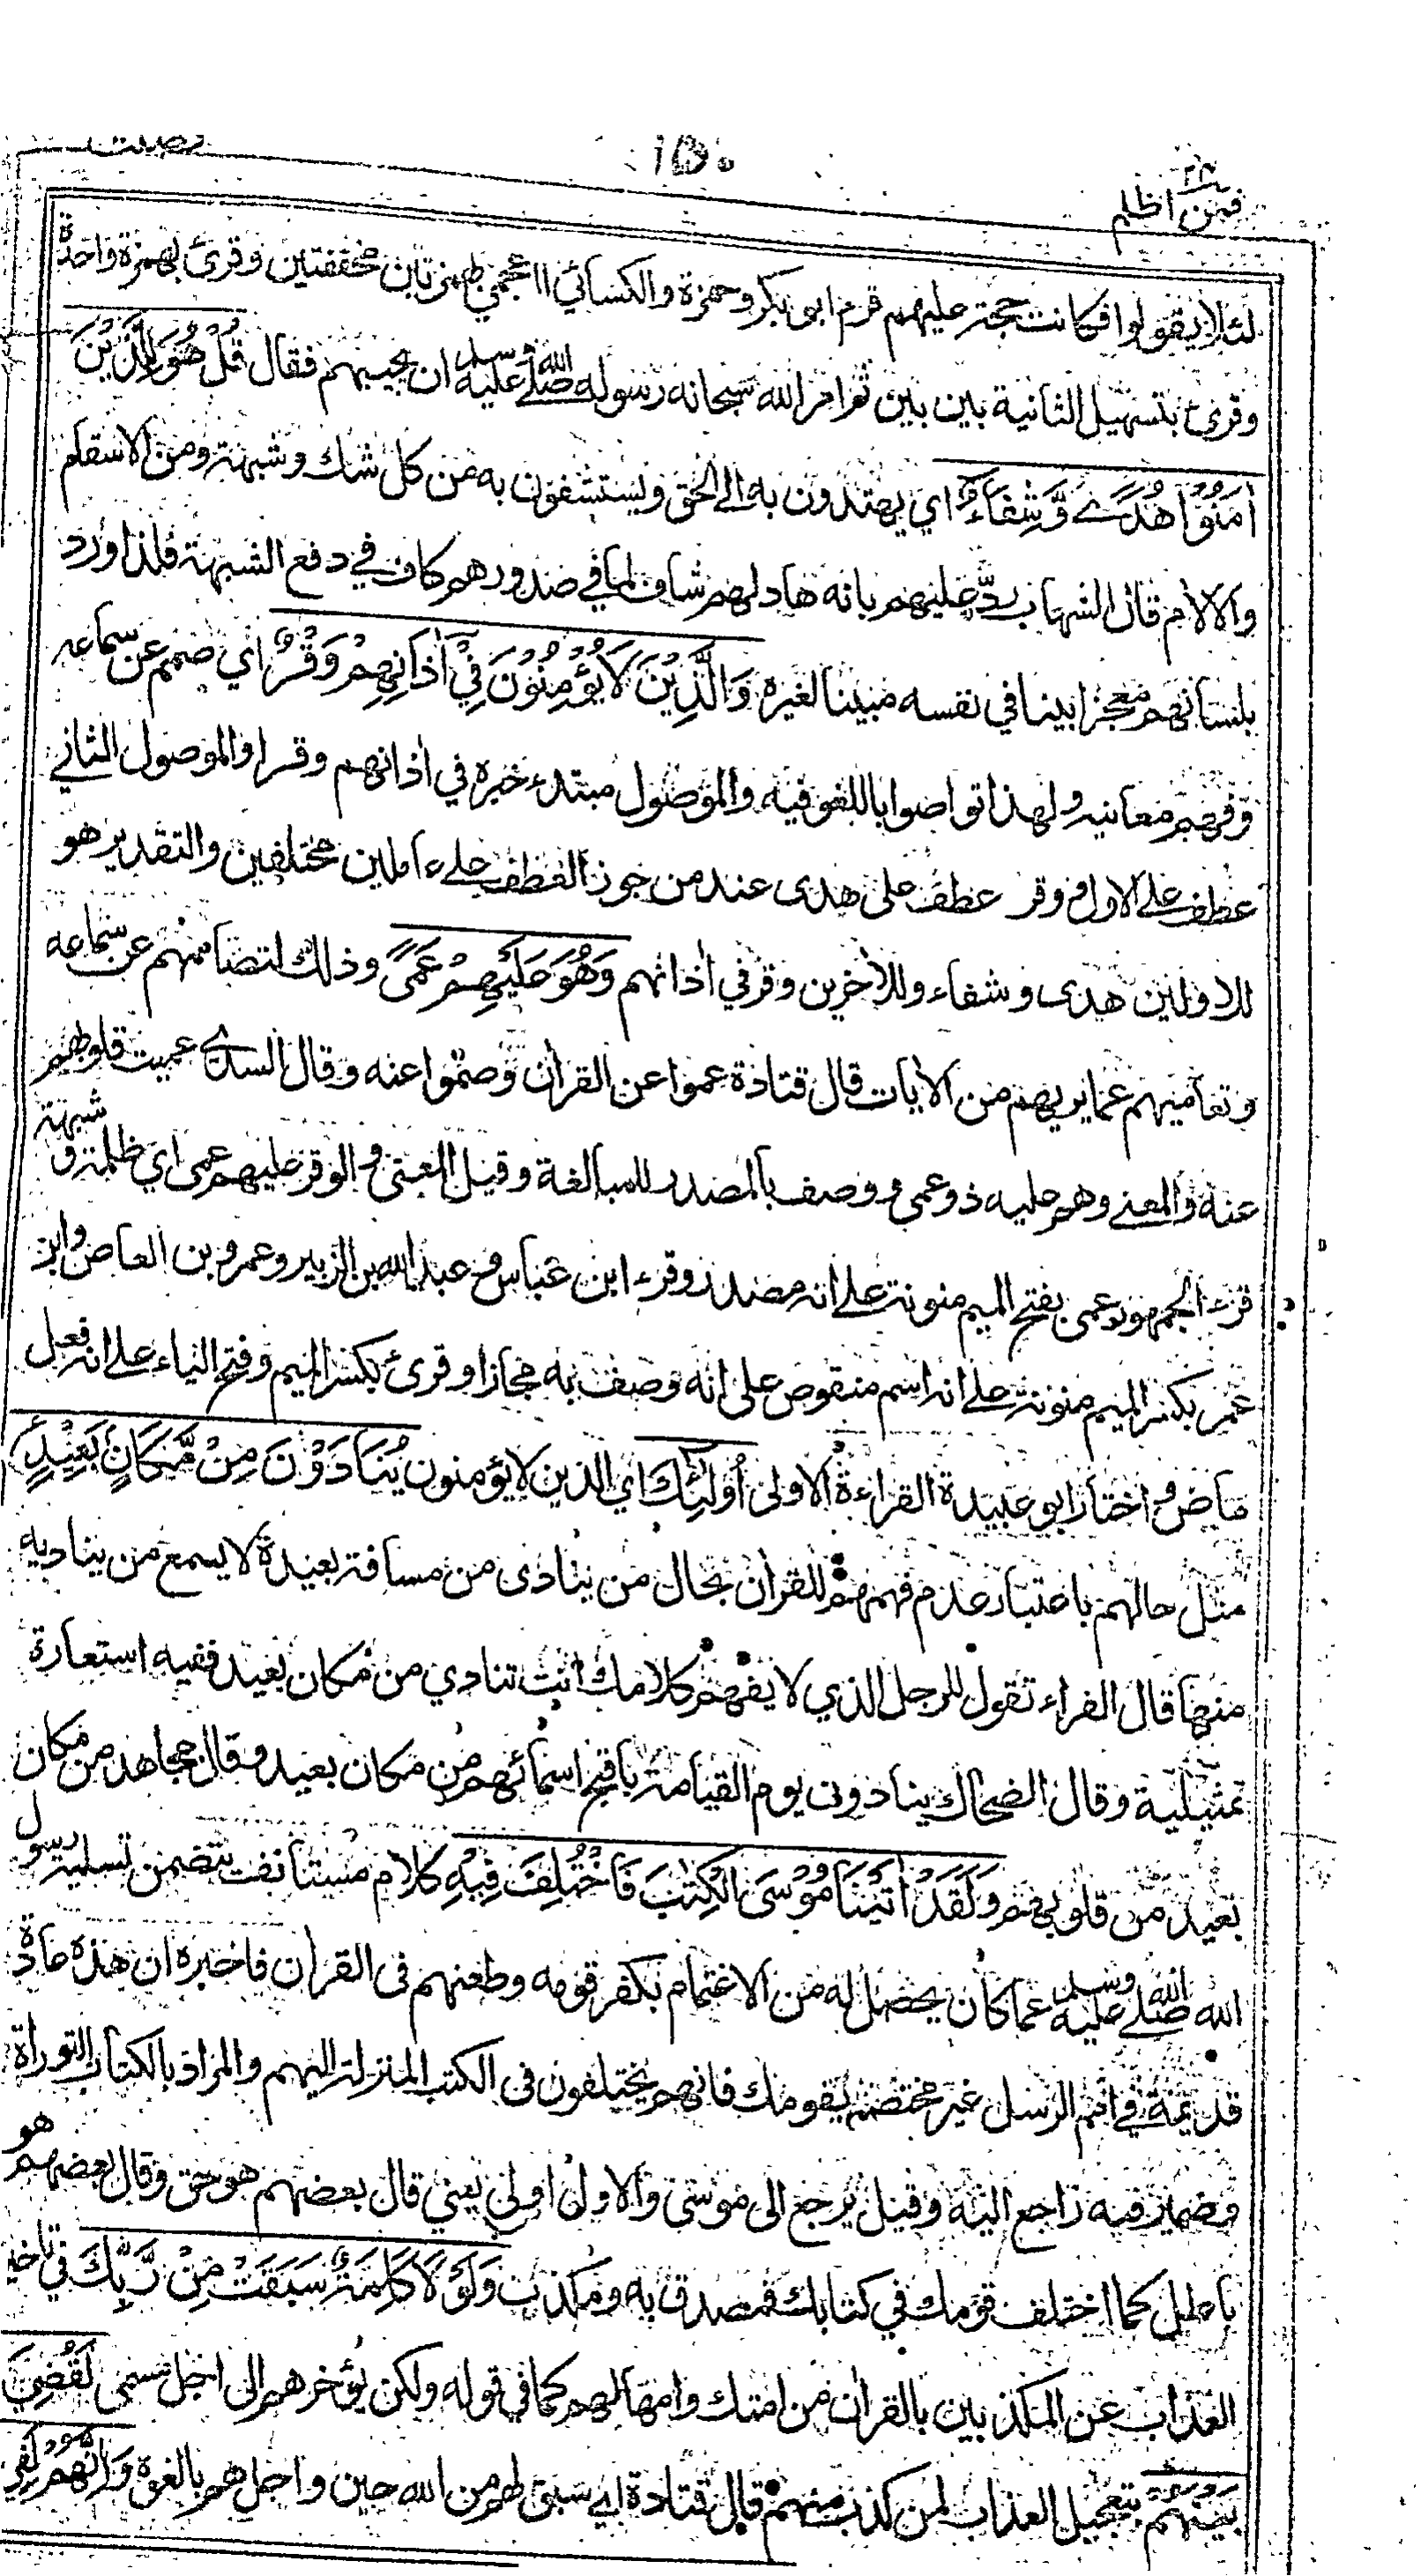 فمن اظلم ٢٤
١٥٠
فصلت
لئلا يقولوا فكانت حجة عليهم قرء ابو بكر وحمزة والكسائي ااعجمي بهمزتين مخففتين وقرئ بهمزة واحدة
وقرئ بتسهيل الثانية بين بين ثم امر الله سبحانه رسوله صلى الله عليه وسلم ان يجيبهم فقال قُلْ هُوَ لِلَّذِيْنَ
اٰمَنُوْا هُدًى وَّشِفَآءٌ اي يهتدون به الى الحق ويستشفون به من كل شك وشبهة ومن الاسقام
والالام قال الشهاب ردّ عليهم بانه هاد لهم شاف لما في صدورهم كاف في دفع الشبهة فلذا ورد
بلسانهم معجزا بينا في نفسه مبينا لغيره وَالَّذِيْنَ لَا يُؤْمِنُوْنَ فِيْٓ اٰذَانِهِمْ وَقْرٌ اي صمم عن سماعه
وفهم معانيه ولهذا تواصوا باللغو فيه والموصول مبتدء خبره في اذانهم وقر او الموصول الثاني
عطف على الاول و وقر عطف على هدى عند من جوز العطف على عاملين مختلفين والتقدير هو
للاولين هدى وشفاء وللاخرين وقر في اذانهم وَهُوَ عَلَيْهِمْ عَمًى وذلك لتصاممهم عن سماعه
وتعاميهم عما يريهم من الايات قال قتادة عموا عن القران وصمّوا عنه وقال السدي عميت قلوبهم
عنه والمعنى وهو عليه ذو عمى و وصف بالمصدر للمبالغة وقيل المعنى والوقر عليهم عمى اي ظلمة وشبهة
قرء الجمهور عمى بفتح الميم منونة على انه مصدر وقرء ابن عباس وعبد الله بن الزبير وعمرو بن العاص وابن
عمر بكسر الميم منونة على انه اسم منقوص على انه وصف به مجازا وقرئ بكسر الميم وفتح الياء على انه فعل
ماض واختار ابو عبيدة القراءة الاولى اُولٰٓئِكَ اي الذين لا يؤمنون يُنَادَوْنَ مِنْ مَّكَانٍۭ بَعِيْدٍ
مثل حالهم باعتبار عدم فهمهم للقران بحال من ينادى من مسافة بعيدة لا يسمع من يناديه
منها قال الفراء تقول للرجل الذي لا يفهم كلامك انت تنادي من مكان بعيد ففيه استعارة
تمثيلية وقال الضحاك ينادون يوم القيامة باقبح اسمائهم من مكان بعيد وقال مجاهد من مكان
بعيد من قلوبهم وَلَقَدْ اٰتَيْنَا مُوْسَى الْكِتٰبَ فَاخْتُلِفَ فِيْهِ كلام مستانف يتضمن تسلية رسول
الله صلى الله عليه وسلم عما كان يحصل له من الاغتمام بكفر قومه وطعنهم فى القران فاخبره ان هذه عادة
قديمة في امم الرسل غير مختصة بقومك فانهم يختلفون فى الكتب المنزلة اليهم والمراد بالكتاب التوراة
وضمير فيه راجع اليه وقيل يرجع الى موسى والاول اولى يعني قال بعضهم هو حق وقال بعضهم هو
باطل كما اختلف قومك في كتابك فمصدق به ومكذب وَلَوْ لَا كَلِمَةٌ سَبَقَتْ مِنْ رَّبِّكَ في تاخير
العذاب عن المكذبين بالقران من امتك وامهالهم كما في قوله ولكن يؤخرهم الى اجل مسمى لَقُضِيَ
بَيْنَهُمْ بتعجيل العذاب لمن كذب منهم قال قتادة اي سبق لهم من الله حين واجل هم بالغوه وَاِنَّهُمْ لَفِيْ